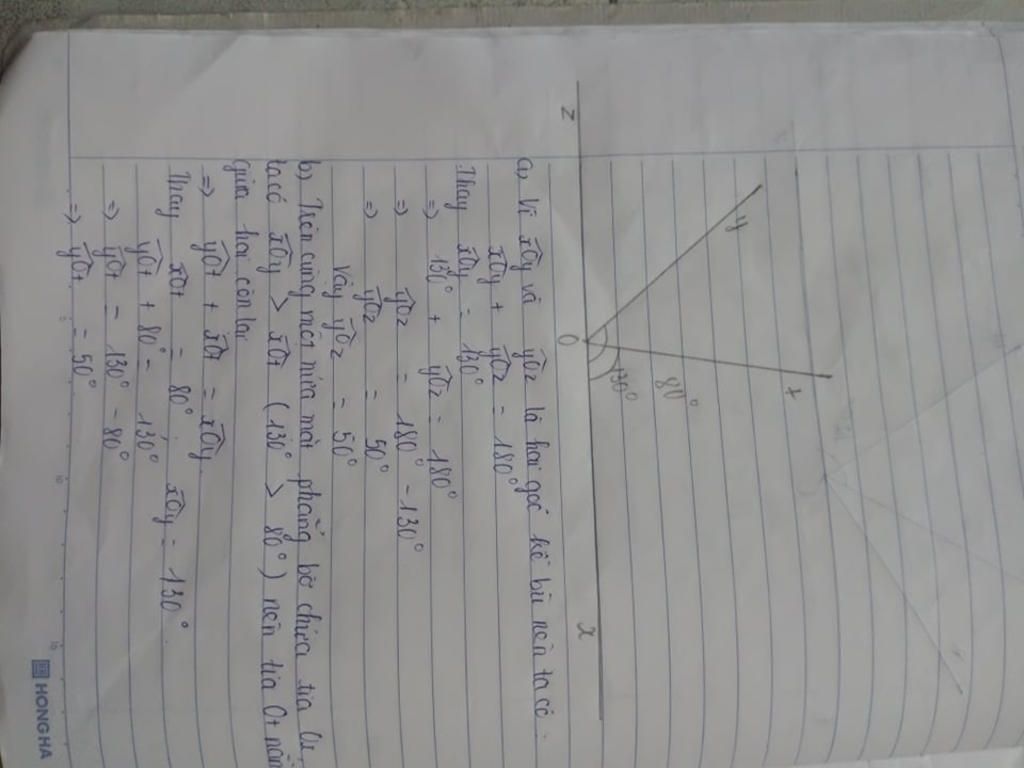 z
y
t
O
130°
80°
x
a) Vì x̂Oy và ŷOz là hai góc kề bù nên ta có:
x̂Oy + ŷOz = 180°
Thay x̂Oy = 130°
=> 130° + ŷOz = 180°
=> ŷOz = 180° - 130°
=> ŷOz = 50°
Vậy ŷOz = 50°
b) Trên cùng một nửa mặt phẳng bờ chứa tia
ta có x̂Oy > x̂Ot (130° > 80°) nên tia Ot nằm
giữa hai còn lại
=> ŷOt + x̂Ot = x̂Oy.
Thay x̂Ot = 80°; x̂Oy = 130°.
ŷOt + 80° = 130°
=> ŷOt = 130° - 80°
=> ŷOt = 50°
HONGHA